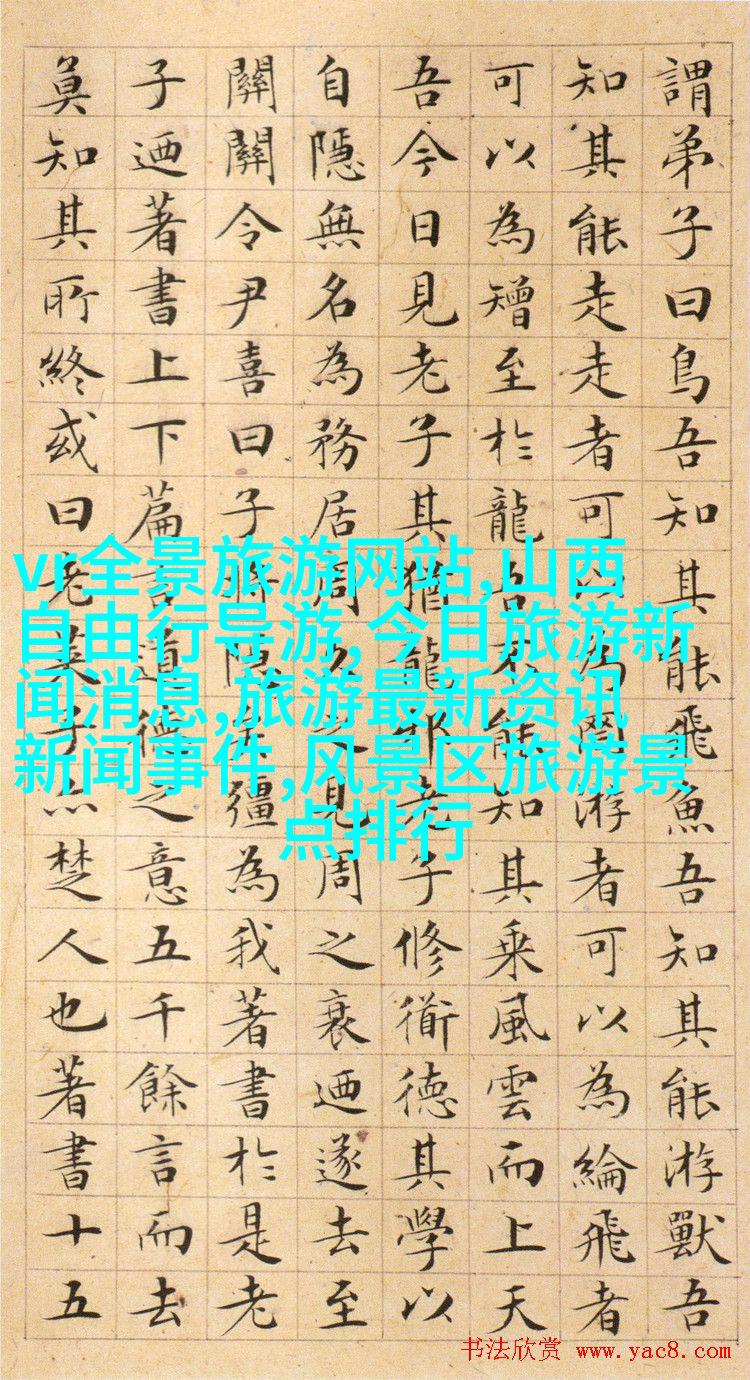 謂弟子曰鳥吾知其能飛魚吾知其能游獸吾
知其能走走者可以為罔游者可以為綸飛者
可以為矰至於龍吾不能知其乘風雲而上天
吾今日見老子其猶龍邪老子修衜德其學以
自隱無名為務居周久之見周之衰迺遂去至
關關令尹喜曰子將隱矣彊為我著書於是老
子迺著書上下篇言道德之意五千餘言而去
莫知其所終或曰老萊子亦楚人也著書十五
vr全景旅游网站,山西
自由行导游,今日旅游新
闻消息,旅游最新资讯
新闻事件,风景区旅游景
点排行
书法欣赏 www.yac8.com